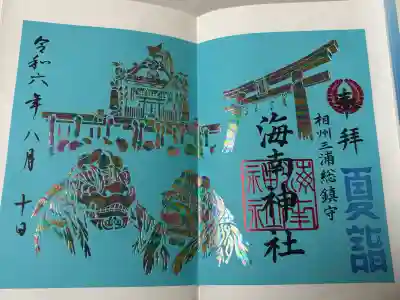 奉拝
夏詣
相州三浦総鎮守
海南神社
令和六年八月
十日